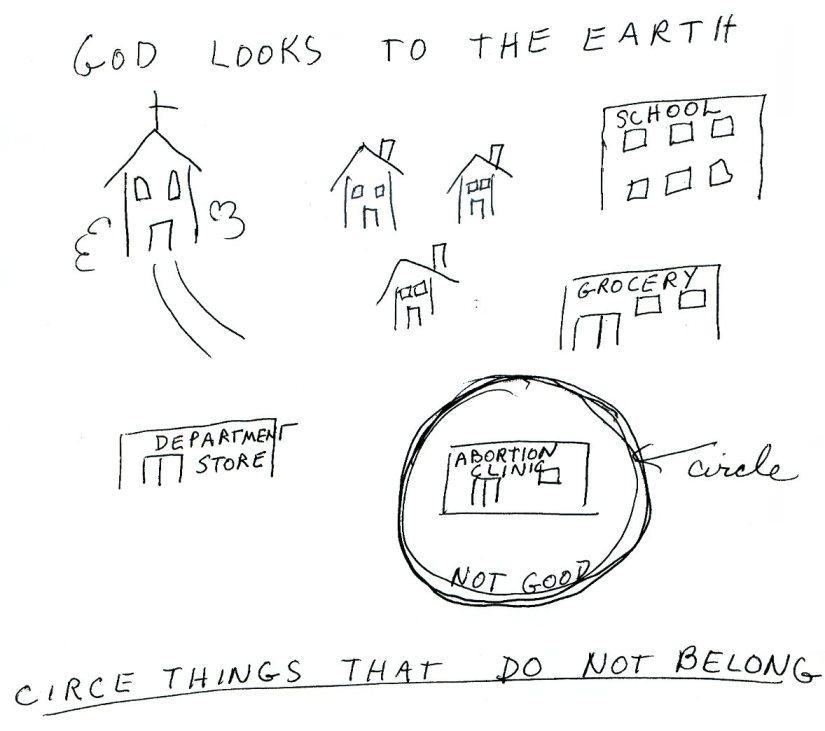 GOD LOOKS TO THE EARTH
SCHOOL
GROCERY
DEPARTMENT
STORE
ABORTION
CLINIC
circle
NOT GOOD
CIRCE THINGS THAT DO NOT BELONG